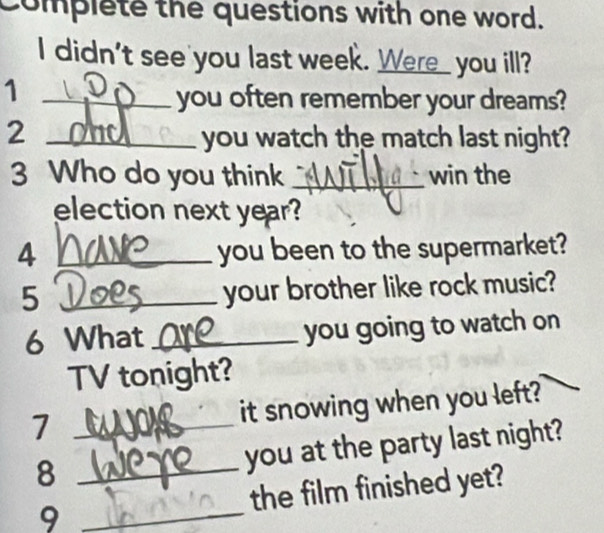 Complete the questions with one word.
I didn't see you last week. Were you ill?
1 Do you often remember your dreams?
2 did you watch the match last night?
3 Who do you think will win the
election next year?
4 have you been to the supermarket?
5 Does your brother like rock music?
6 What are you going to watch on
TV tonight?
7 was it snowing when you left?
8 were you at the party last night?
9 the film finished yet?